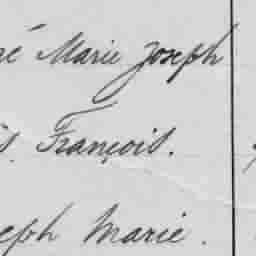 é Marie Joseph
s François.
eph Marie.